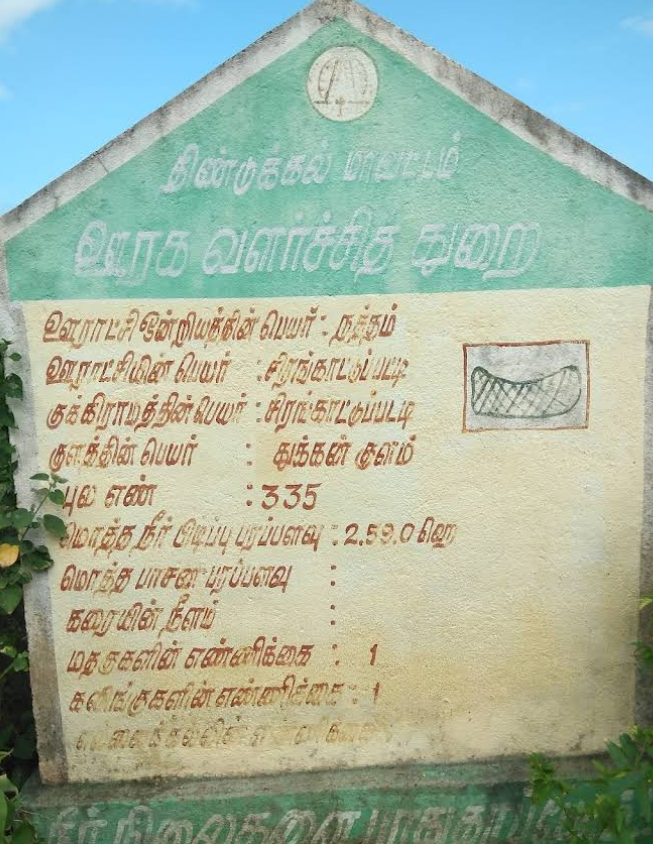 திண்டுக்கல் மாவட்டம்
ஊரக வளர்ச்சித துறை
ஊராட்சி ஒன்றியத்தின் பெயர் : நத்தம்
ஊராட்சியின் பெயர் : சிரங்காட்டுப்பட்டி
குக்கிராமத்தின் பெயர் : சிரங்காட்டுப்பட்டி
குளத்தின் பெயர் : துக்கன் குளம்
புல எண் : 335
மொத்த நீர் பிடிப்பு பரப்பளவு : 2.59.0 ஹெ
மொத்த பாசண பரப்பளவு :
கரையின் நீளம் :
மதகுகளின் எண்ணிக்கை : 1
கலிங்குகளின் எண்ணிக்கை : 1
நீர் நிலைகளை